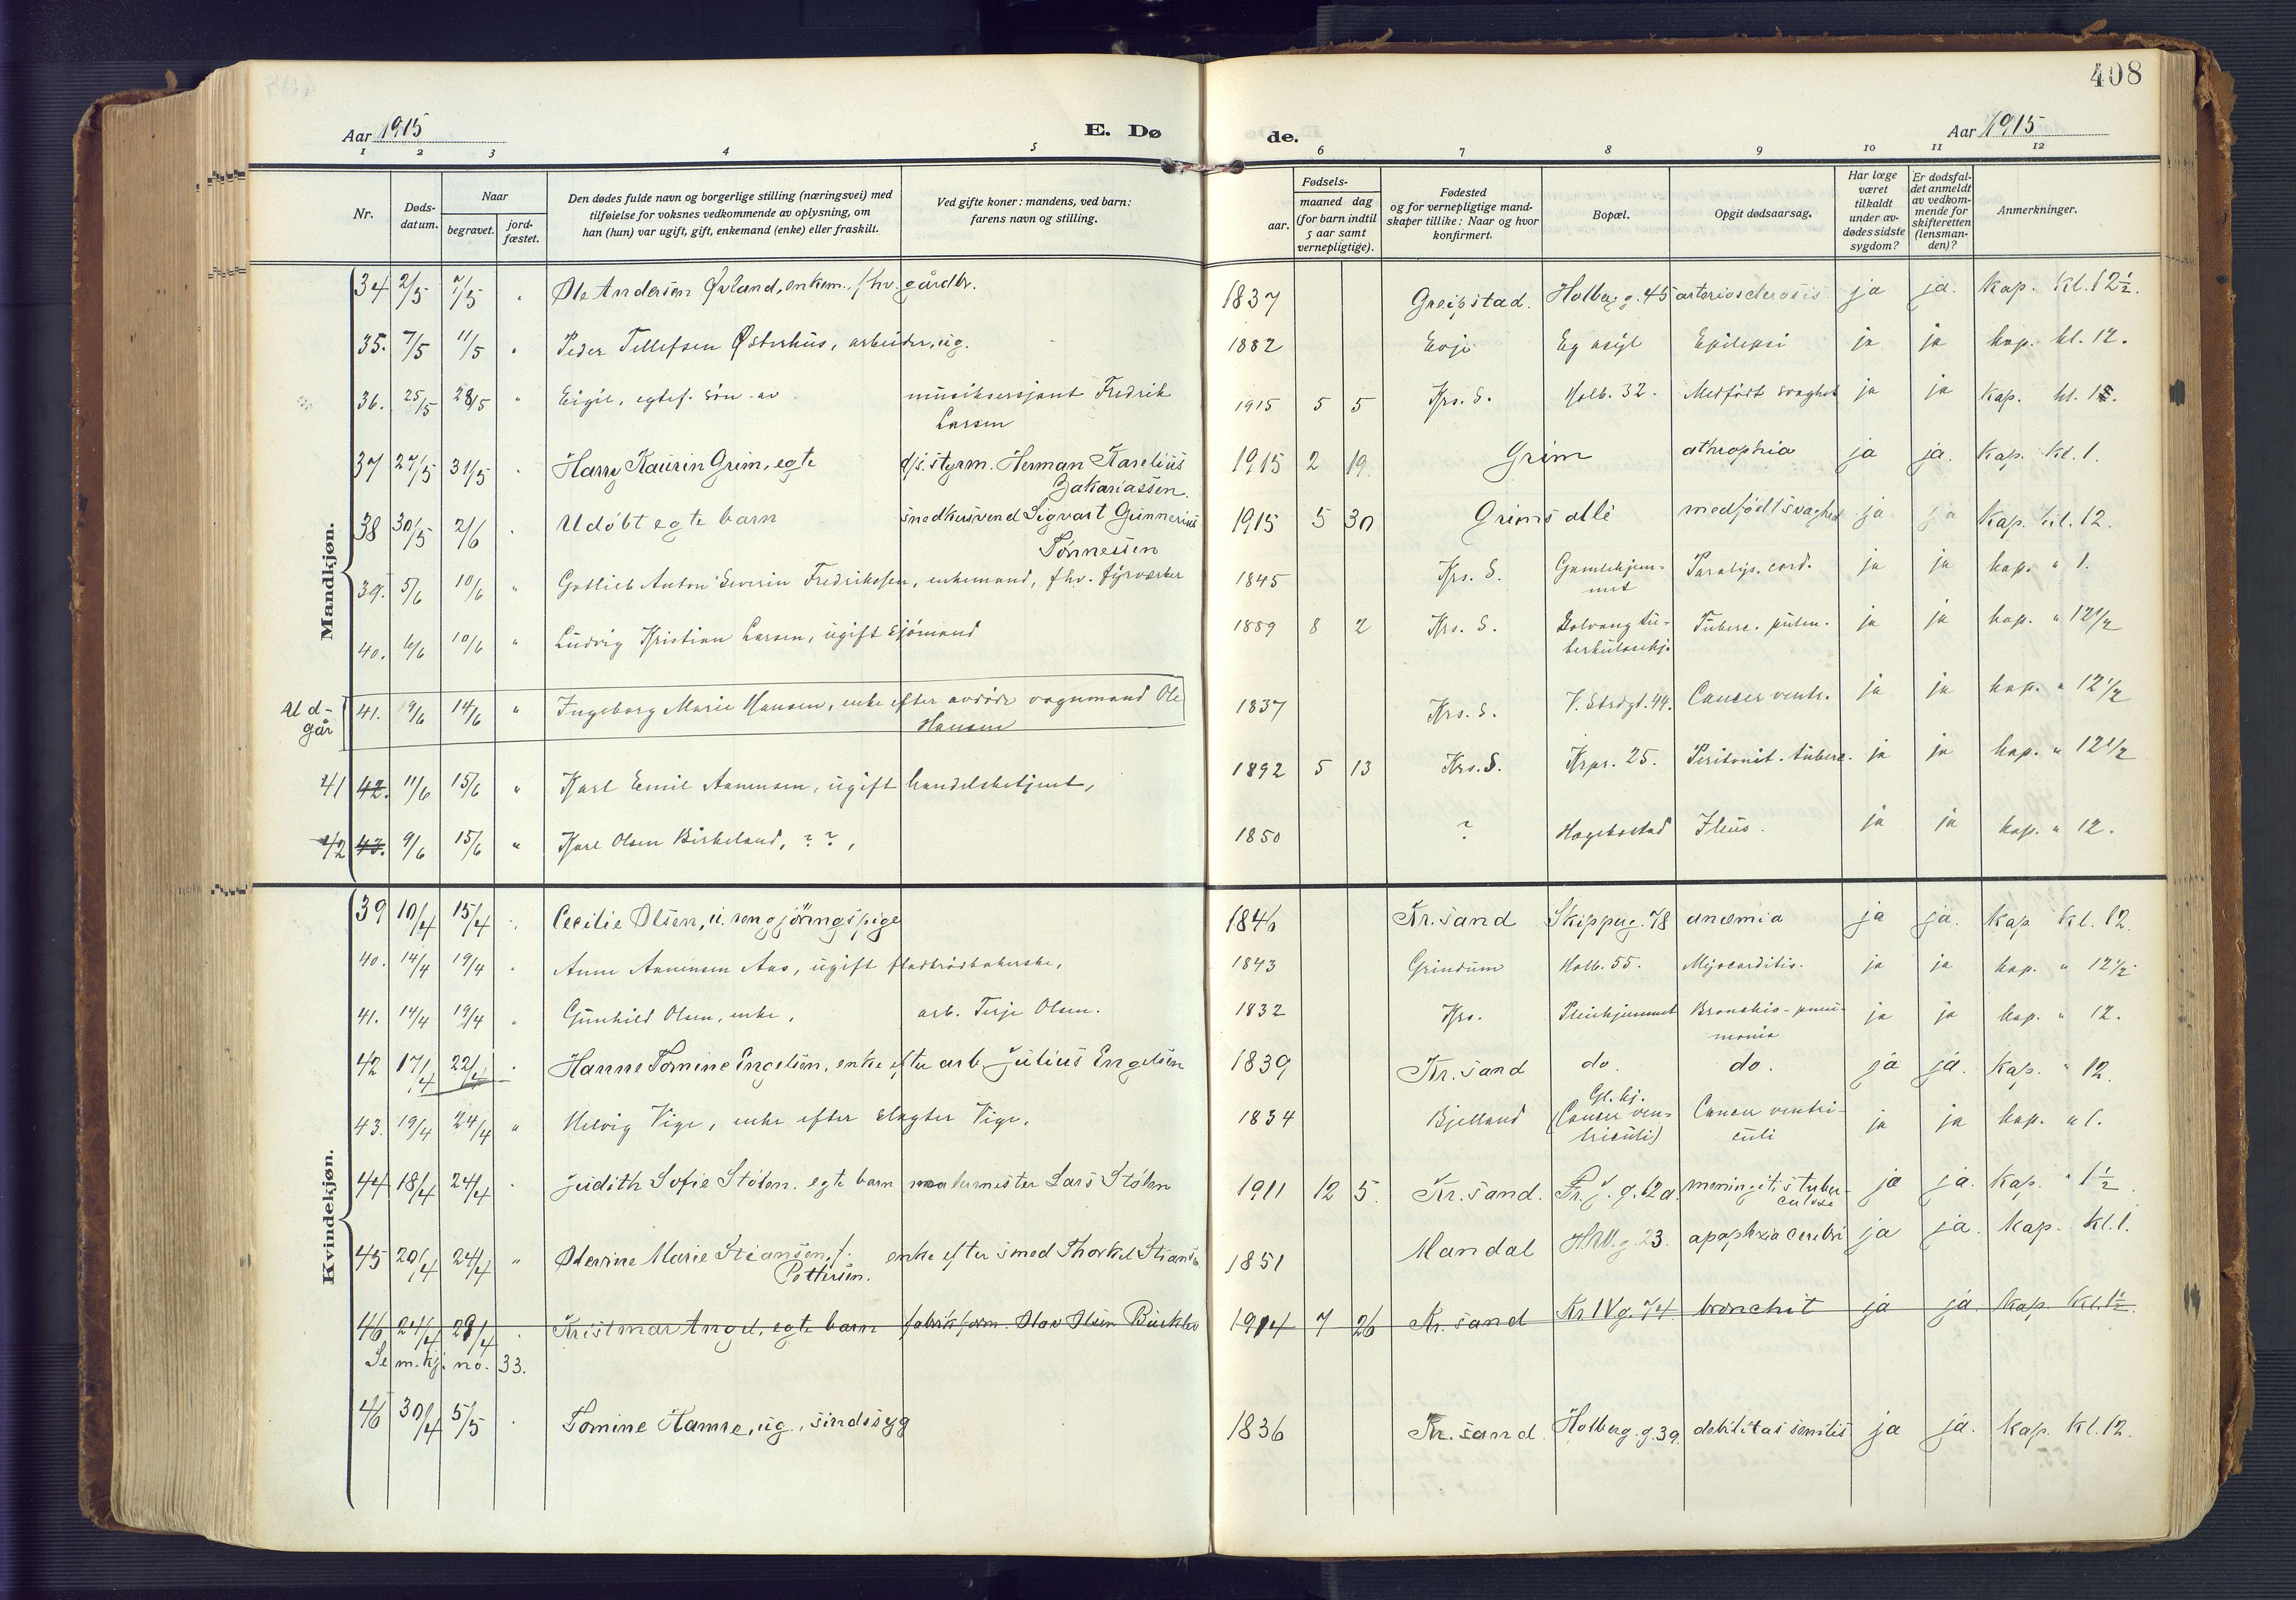 408
Aar 1915
E. Dø
de.
Aar 1915
1 2 3 4 5 6 7 8 9 10 11 12
Nr.
Døds-
datum.
Naar
begravet.
jord-
fæstet.
Den dødes fulde navn og borgerlige stilling (næringsvei) med
tilføielse for voksnes vedkommende av oplysning, om
han (hun) var ugift, gift, enkemand (enke) eller fraskilt.
Ved gifte koner: mandens, ved barn:
farens navn og stilling.
Fødsels-
aar.
maaned dag
(for barn indtil
5 aar samt
vernepligtige).
Fødested
og for vernepligtige mand-
skaper tillike: Naar og hvor
konfirmert.
Bopæl.
Opgit dødsaarsag.
Har læge
været
tilkaldt
under av-
dødes sidste
sygdom?
Er dødsfal-
det anmeldt
av vedkom-
mende for
skifteretten
(lensman-
den)?
Anmerkninger.
Mandkjøn.
34 2/5 7/5 " Ole Andersen Øvland, enkem., fhv. gårdbr. 1837 Greipstad. Holbg. g. 45 arteriosclerosis ja ja. Kap. kl. 12½.
35. 7/5 11/5 " Peder Tellefsen Østerhus, arbeider, ug. 1882 Evje Eg asyl Epilepsi ja ja kap. kl. 12.
36. 25/5 28/5 " Eigil, egtef. søn av musiksersjant Fredrik 1915 5 5 Krs. S. Holb. 32. Medfødt svaghet ja ja Kap. kl. 1.
Larsen
37 27/5 31/5 " Harry Kaurin Grim, egte d/s. styrm. Herman Karelius 1915 2 19 Grim athrophia ja ja. Kap. Kl. 1.
Zakariassen.
38 30/5 2/6 " Udøbt egte barn snedkersvend Sigvart Gunnerius 1915 5 30 Grims allé medfødt svaghed ja ja Kap. kl. 12.
Tønnessen
39. 5/6 10/6 " Gotlieb Anton Severin Fredriksen, enkemand, fhv. fyrværker 1845 Krs. S. Gamlehjem- Paralys. cord. ja ja kap. " 1.
met
40. 6/6 10/6 " Ludvig Kristian Larsen, ugift sjømand 1889 8 2 Krs. S. Solvang tu- Tuberc. pulm. ja ja kap. " 12½
berkulosehj.
Utd-
går
41. 9/6 14/6 " Ingeborg Marie Hansen, enke efter avdøde vognmand Ole 1837 Krs. S. V. Strdgt. 44. Cancer ventr. ja ja kap. " 12½
Hansen
41 42. 11/6 15/6 " Karl Emil Aanensen, ugift handelsbetjent, 1892 5 13 Krs. S. Krpr. 25. Peritonit. tuberc. ja ja kap. " 12½
42 43. 9/6 15/6 " Karl Olsen Birkeland, ? ?, 1850 ? Hægebostad Ileus. ja ja kap. " 12.
Kvindekjøn.
39 10/4 15/4 " Cecilie Olsen, u. rengjøringspige 1846 Kr. sand Skipperg. 78 anæmia ja ja. Kap Kl. 12.
40. 14/4 19/4 " Anne Aanensen Aas, ugift fladbrødbakerske, 1843 Grindum Holb. 55. Myocarditis. ja ja kap. " 12½
41. 14/4 19/4 " Gunhild Olsen, enke, arb. Terje Olsen. 1832 Krs. Pleiehjemmet Bronchio-pneu- ja ja kap. " 12.
monia
42 17/4 22/4 " Hanne Tomine Engelsen, enke efter arb Julius Engelsen 1839 Kr. sand do. do. ja ja. Kap. " 12.
43. 19/4 24/4 " Helvig Vige, enke efter slagter Vige. 1834 Bjelland Gl. hj. (Cancer ven- Cancer ventri- ja ja kap. " 1.
triculi) culi
44 18/4 24/4 " Judith Sofie Stølen. egte barn malermester Lars Stølen 1911 12 5. Kr. sand. Fr. V. g. 12a. meningitis tuber- ja ja. Kap. " 1½
culose
45 20/4 24/4 " Oterine Marie Stiansen, f. enke efter smed Thorkel Stiansen 1851 Mandal H.W. g. 23. apoplexia cerebri ja ja. Kap. Kl. 1.
Pettersen.
46 24/4 29/4 " Kristmar Angel, egte barn fabrikform. Olav Olsen 1914 7 26 Kr. sand Kr. IV g. 74. bronchit ja ja. Kap. Kl. 1½.
Se m. kj. no. 33.
46 30/4 5/5 " Tomine Hamre, ug., sindssyg 1836 Kr. sand. Holberg. g. 39. debilitas senilis ja ja. Kap. Kl. 12.